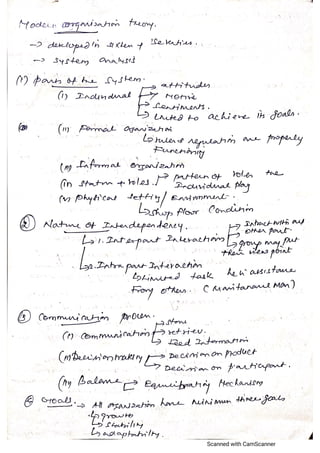 Modern organisation theory.
→ developed in sixties & seventies..
→ system analysis
(1) Parts of the System.
→ attitudes
(i) Individual → Motive
→ Sentiments.
→ United to achieve its goals.
(ii) Formal Organization
↳ rules & regulation are properly
Functioning
(iii) Informal organization
(iv) Status + roles. → pattern of roles the
Individual play
(v) Physical setting / Environment.
↳ Shop floor Condition
② Nature of Interdependency.
→ 1. Interpart Interaction → Intract with out
other part.
→ group may put
their view point
→ 2. Intrapart Interaction
↳ Limited task he is assistance
From others. (Maintanance Man)
③ Communication problem.
→ store
(i) Communication → retriev.
↳ feed Information
(ii) Decision making → Decision on product
→ Decision on participant.
(iii) Balance → Equilibrating Mechanism
④ Goals. → All organization have minimum three goals
↳ growth
↳ Stability
↳ adaptability.
Scanned with CamScanner